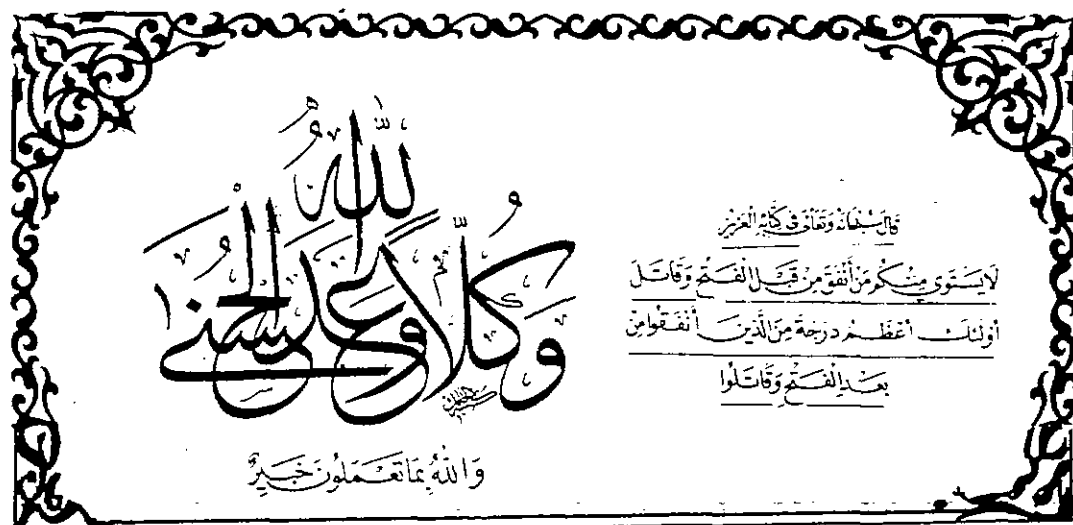 قَالَ سُبْحَانَهُ وَتَعَالَى فِي كِتَابِهِ الْعَزِيزِ
لَا يَسْتَوِي مِنْكُمْ مَنْ أَنْفَقَ مِنْ قَبْلِ الْفَتْحِ وَقَاتَلَ
أُولَئِكَ أَعْظَمُ دَرَجَةً مِنَ الَّذِينَ أَنْفَقُوا مِنْ
بَعْدِ الْفَتْحِ وَقَاتَلُوا
وَكُلًّا وَعَدَ اللَّهُ الْحُسْنَى
وَاللَّهُ بِمَا تَعْمَلُونَ خَبِيرٌ